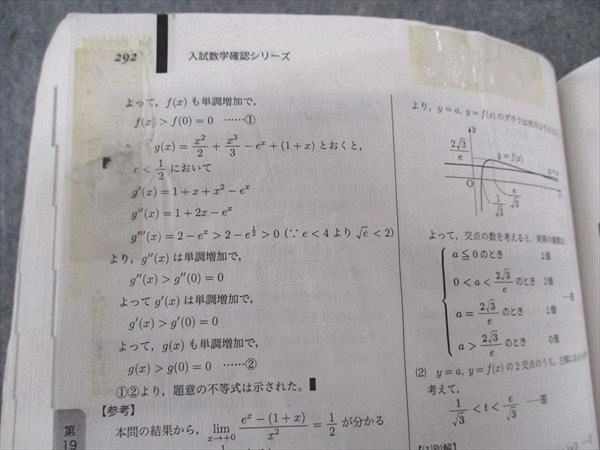 292
入試数学確認シリーズ
よって，f(x) も単調増加で，
f(x) > f(0) = 0 ……①
g(x) = x²/2 + x³/3 − eˣ + (1 + x) とおくと，
x < 1/2 において
g′(x) = 1 + x + x² − eˣ
g″(x) = 1 + 2x − eˣ
g‴(x) = 2 − eˣ > 2 − e^{1/2} > 0 (∵ e < 4 より √e < 2)
より，g″(x) は単調増加で，
g″(x) > g″(0) = 0
よって g′(x) は単調増加で，
g′(x) > g′(0) = 0
よって，g(x) も単調増加で，
g(x) > g(0) = 0 ……②
①②より，題意の不等式は示された。
【参考】
本問の結果から，lim_{x→+0} (eˣ − (1 + x))/x² = 1/2 が分かる
第
19
より，y = a, y = f(x) のグラフは
y
2√3/e
y = f(x)
O
1/√3
e/√3
よって，交点の数を考えると，実解の個数は
a ≦ 0 のとき 1個
0 < a < 2√3/e のとき 2個
a = 2√3/e のとき 1個
a > 2√3/e のとき 0個
(2) y = a, y = f(x) の2交点のうち，
考えて，
1/√3 < t < e/√3 ……答